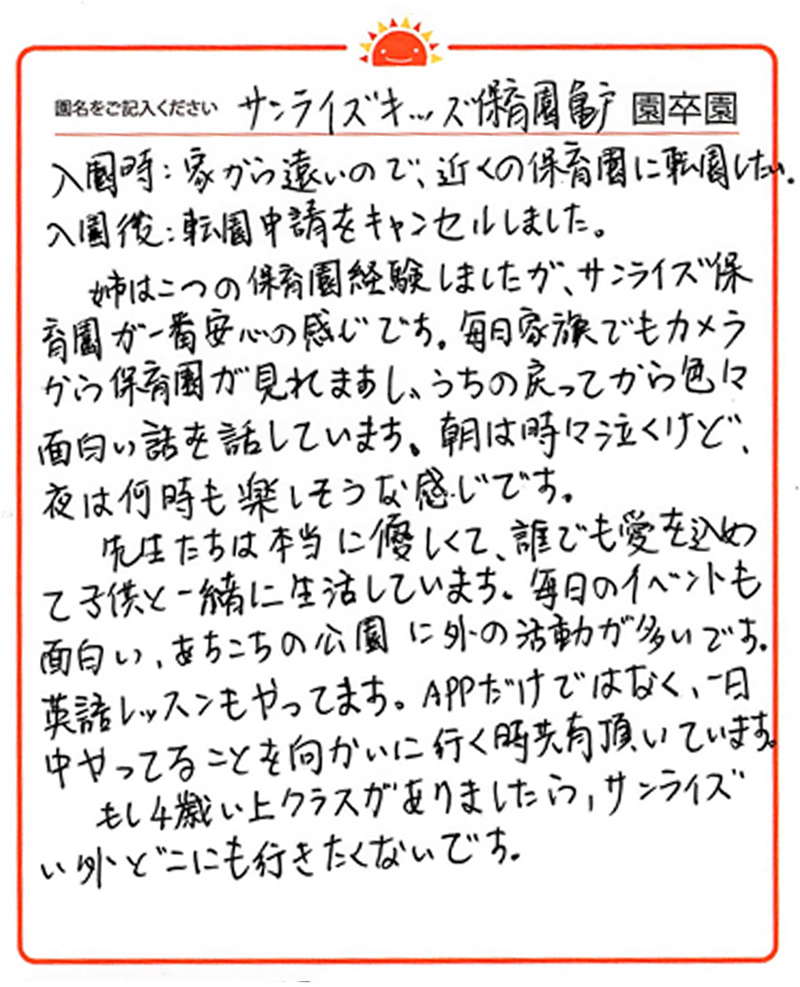 園名をご記入ください サンライズキッズ保育園亀戸 園卒園
入園時：家から遠いので、近くの保育園に転園したい.
入園後：転園申請をキャンセルしました。
姉は二つの保育園経験しましたが、サンライズ保
育園が一番安心の感じです。毎日家族でもカメラ
から保育園が見れますし、うちの戻ってから色々
面白い話を話しています。朝は時々泣くけど、
夜は何時も楽しそうな感じです。
先生たちは本当に優しくて、誰でも愛を込め
て子供と一緒に生活しています。毎日のイベントも
面白い、あちこちの公園に外の活動が多いです。
英語レッスンもやってます。APPだけではなく、一日
中やってることを向かいに行く時共有頂いています。
もし4歳い上クラスがありましたら，サンライズ
い外どこにも行きたくないです。